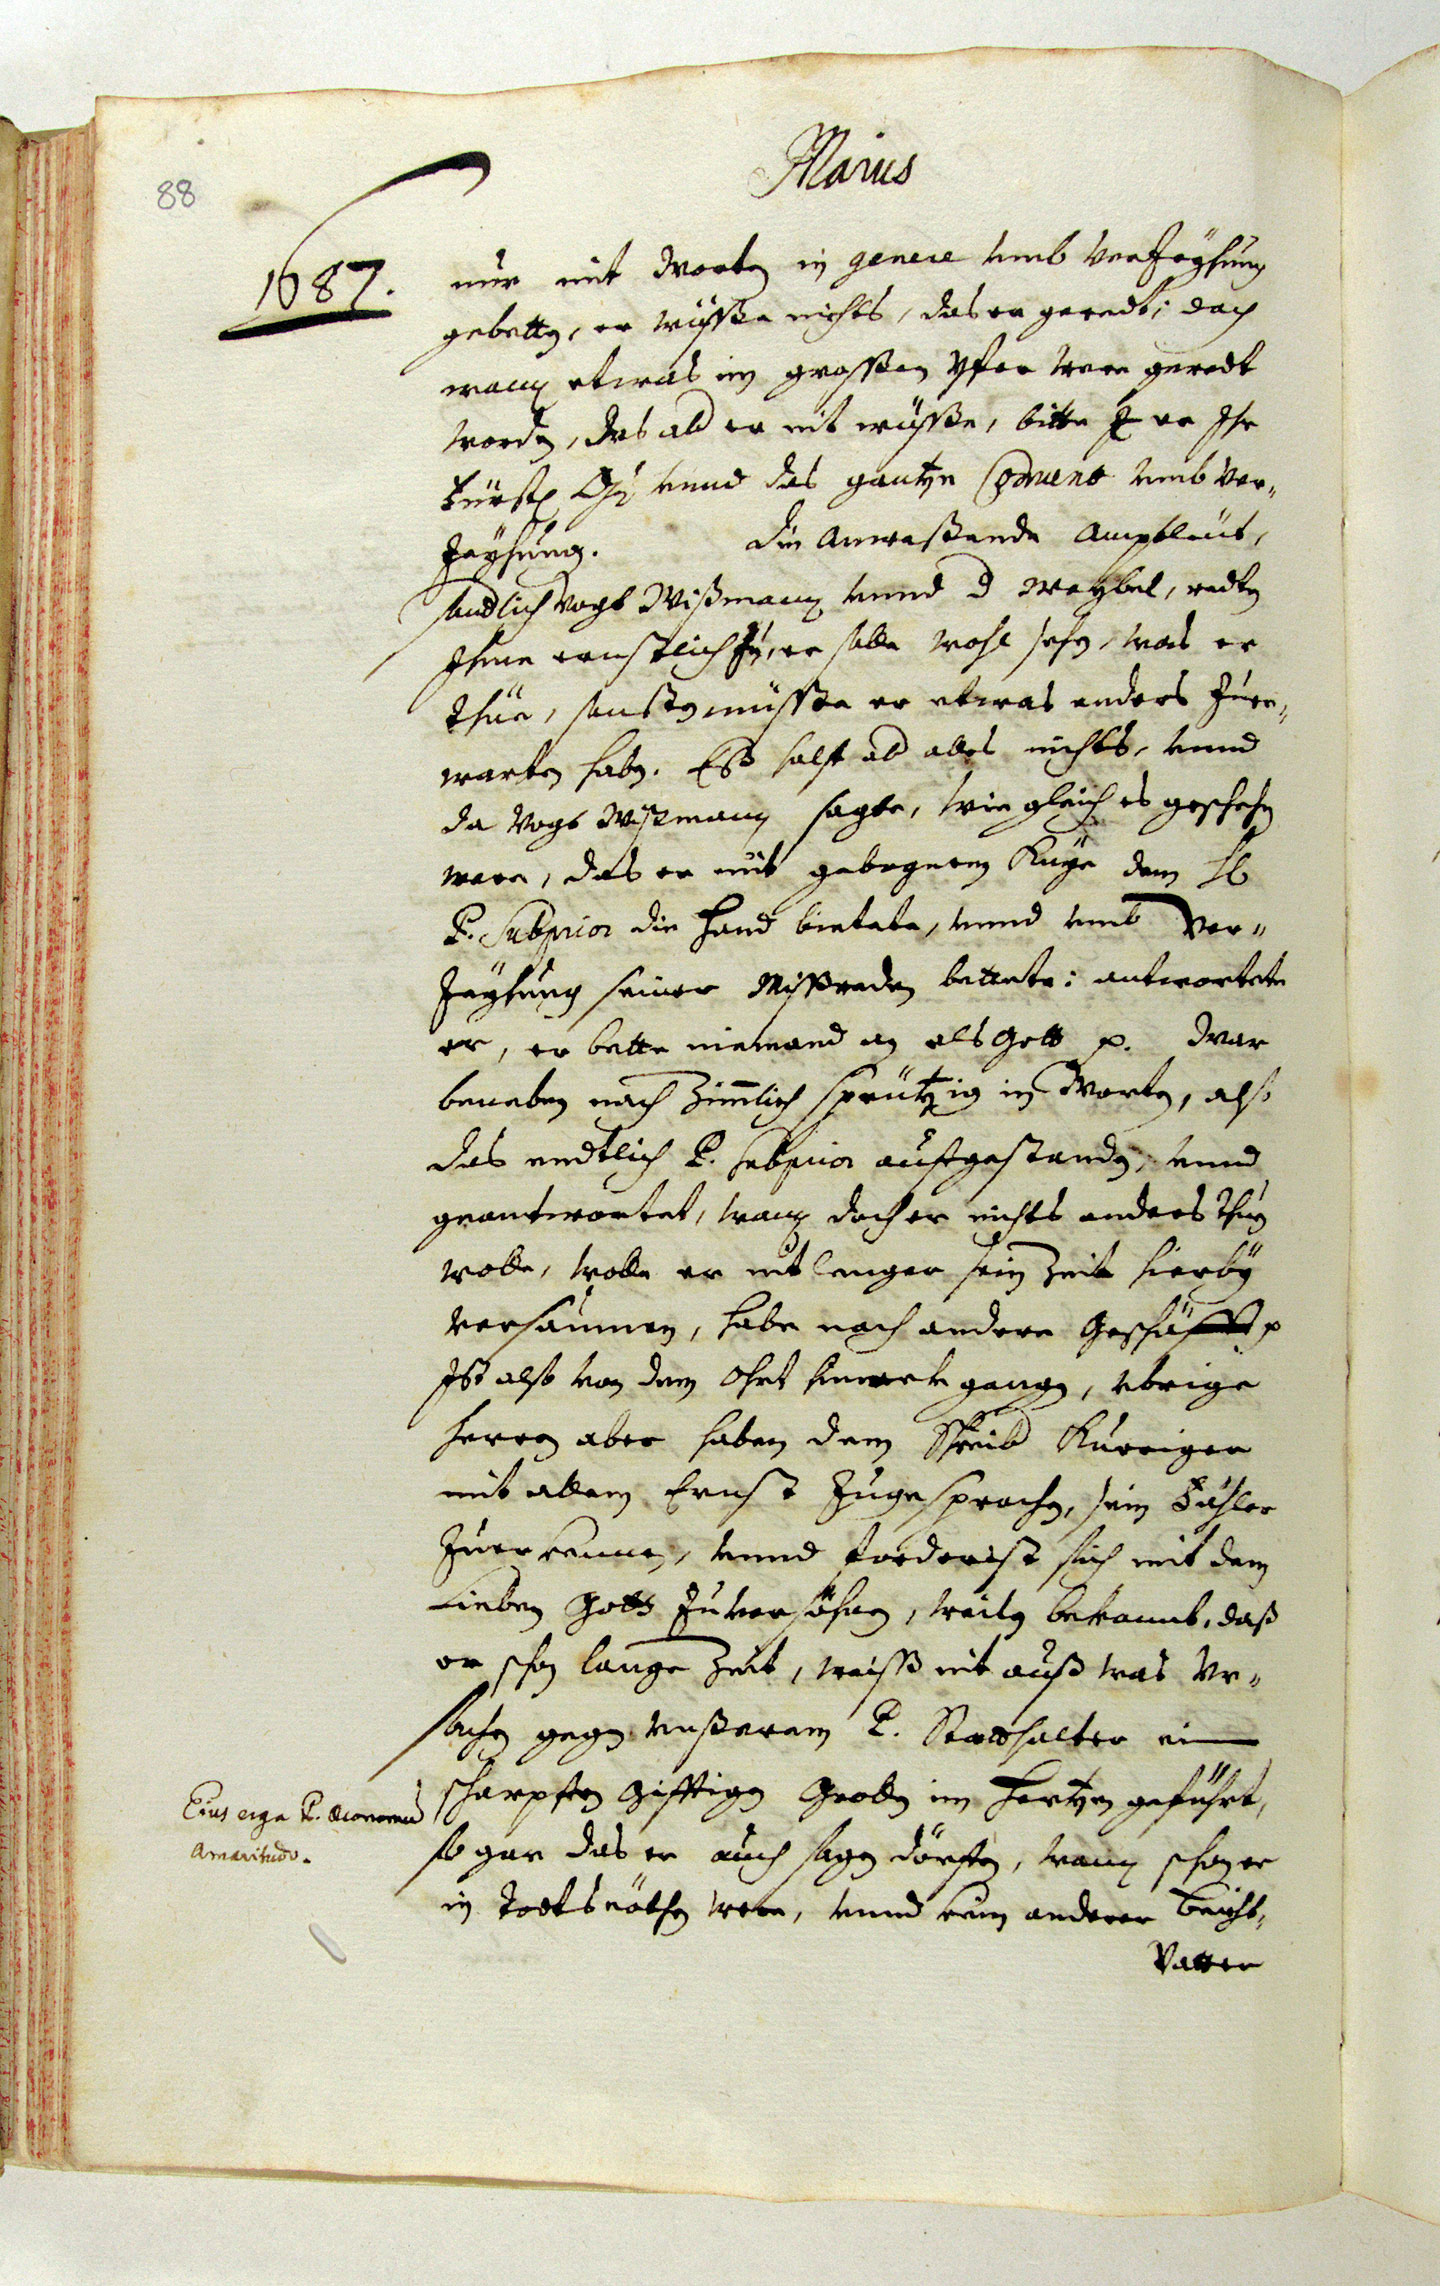 88
Maius
1687.
nur mit Worten in genere umb Verzeÿhung
gebetten, er wüsste nichts, das er geredt; doch
wann etwas im grossen Yfer were geredt
worden, das abr er nit wüsste, bitte er Ihr
Fürstl. Gn. unnd das gantze Convent umb Ver-
zeyhung. Die Anwessende Amptleüt,
sandlich Vogt Wißmann unnd d Weÿbel, redten
Ihme ernstlich zu, er solle wohl sehen, was er
thüe, sonsten müsste er etwas anders zuer-
warten haben. Ess halff abr alles nichts, unnd
da Vogt Wißmann sagte, wie gleich es geschehen
were, das er mit gebognem Knÿe dem H.
P. Subprior die Hand bietete, unnd umb Ver-
zeyhung seiner Missreden bettete: antwortete
er, er bette niemand an als Gott p. War
beneben noch zimlich sprützig in Worten, also
das endtlich P. Subprior auffgestanden, unnd
geantwortet, wann doch er nichts anders thun
wolle, wolle er nit lenger sein Zeit hierbÿ
versaumen, habe noch andere Geschäfft p
Ist also von dem Ohrt hinweck gangen, übrige
Herren aber haben dem Schreibr Kurriger
mit allem Ernst zugesprochen, sein Fähler
zuerkennen, unnd forderist sich mit dem
Lieben Gott zuversöhnen, weilen bekannt, daß
er schon lange Zeit, weiss nit auß was Ur-
sachen gegen unßerem P. Statthalter ein
scharpffen gifftigen Grollen im Hertzen geführt,
so gar das er auch sagen dörffen, wann schon er
in Todtsnöthen were, unnd kein anderer Beicht-
Vatter
Eius erga P. Oeconomum
Amaritudo.